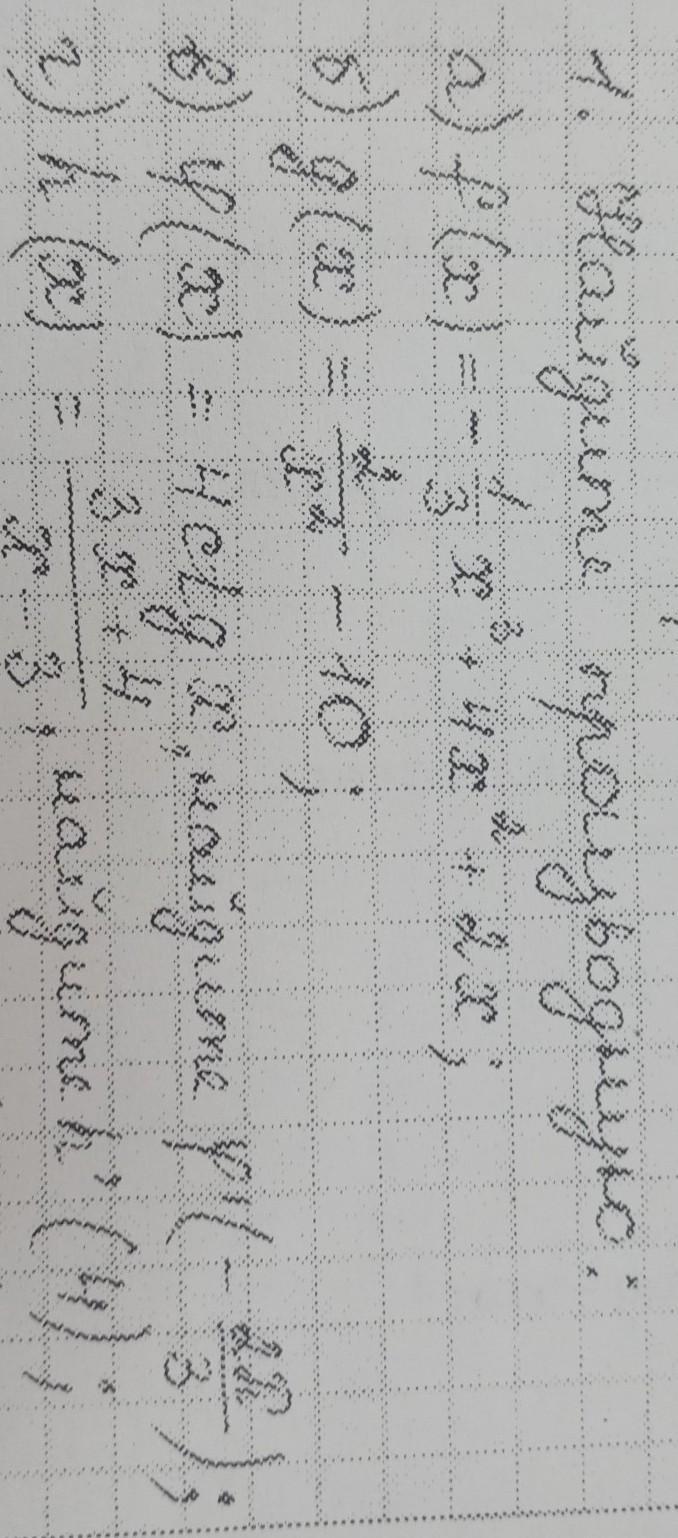 1. Найдите производную:
а) f(x) = - 1/3 x³ + 4x² + 2x;
б) g(x) = 2/x² - 10;
в) φ(x) = 4ctg x, найдите φ'(- 2π/3);
г) h(x) = 3x+4/x-3; найдите h'(4);